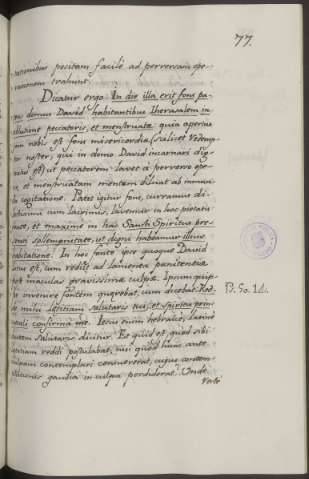 77.
tationibus peccitam facilè ad perversam ope-
rationem trahunt.
Dicatur ergo In die illa erit fons pa-
tens domus David habitantibus Iherusalem in
ablutione peccatoris, et menstruatæ quia apertus
iam nobis est fons misericordiæ salvator redemp-
tor noster, qui in domo David incarnari dig-
natus est ut peccatorem lavet à perverso ope-
re, et menstruatam mentem abluat ab immun-
da cogitatione. Patet igitur fons, curramus di-
cum lacrimis, lavemur in hoc pietatis
fonte, et maxime in hac Sancti Spiritus præ-
sentia solemnitate, ut digni habeamur illius
habitatione. In hoc fonte ipse quoque David
lotus est, cum rediit ad lamenta pænitentiæ
post maculas gravissimæ culpæ. Ipsum quip-
pe invenire fontem quærebat, cum dicebat Red-
de mihi lætitiam salutaris tui, et spiritu prin-
cipali confirma me. Iesus enim hebraicè, latinè
autem salutaris dicitur. Et quid est, quod sibi
lætitiam reddi postulabat, nisi quod hunc ante
culpam contemplari consueverat, cuius contem-
plationis gaudia in culpa perdiderat. Unde
Ps. 50. 14.